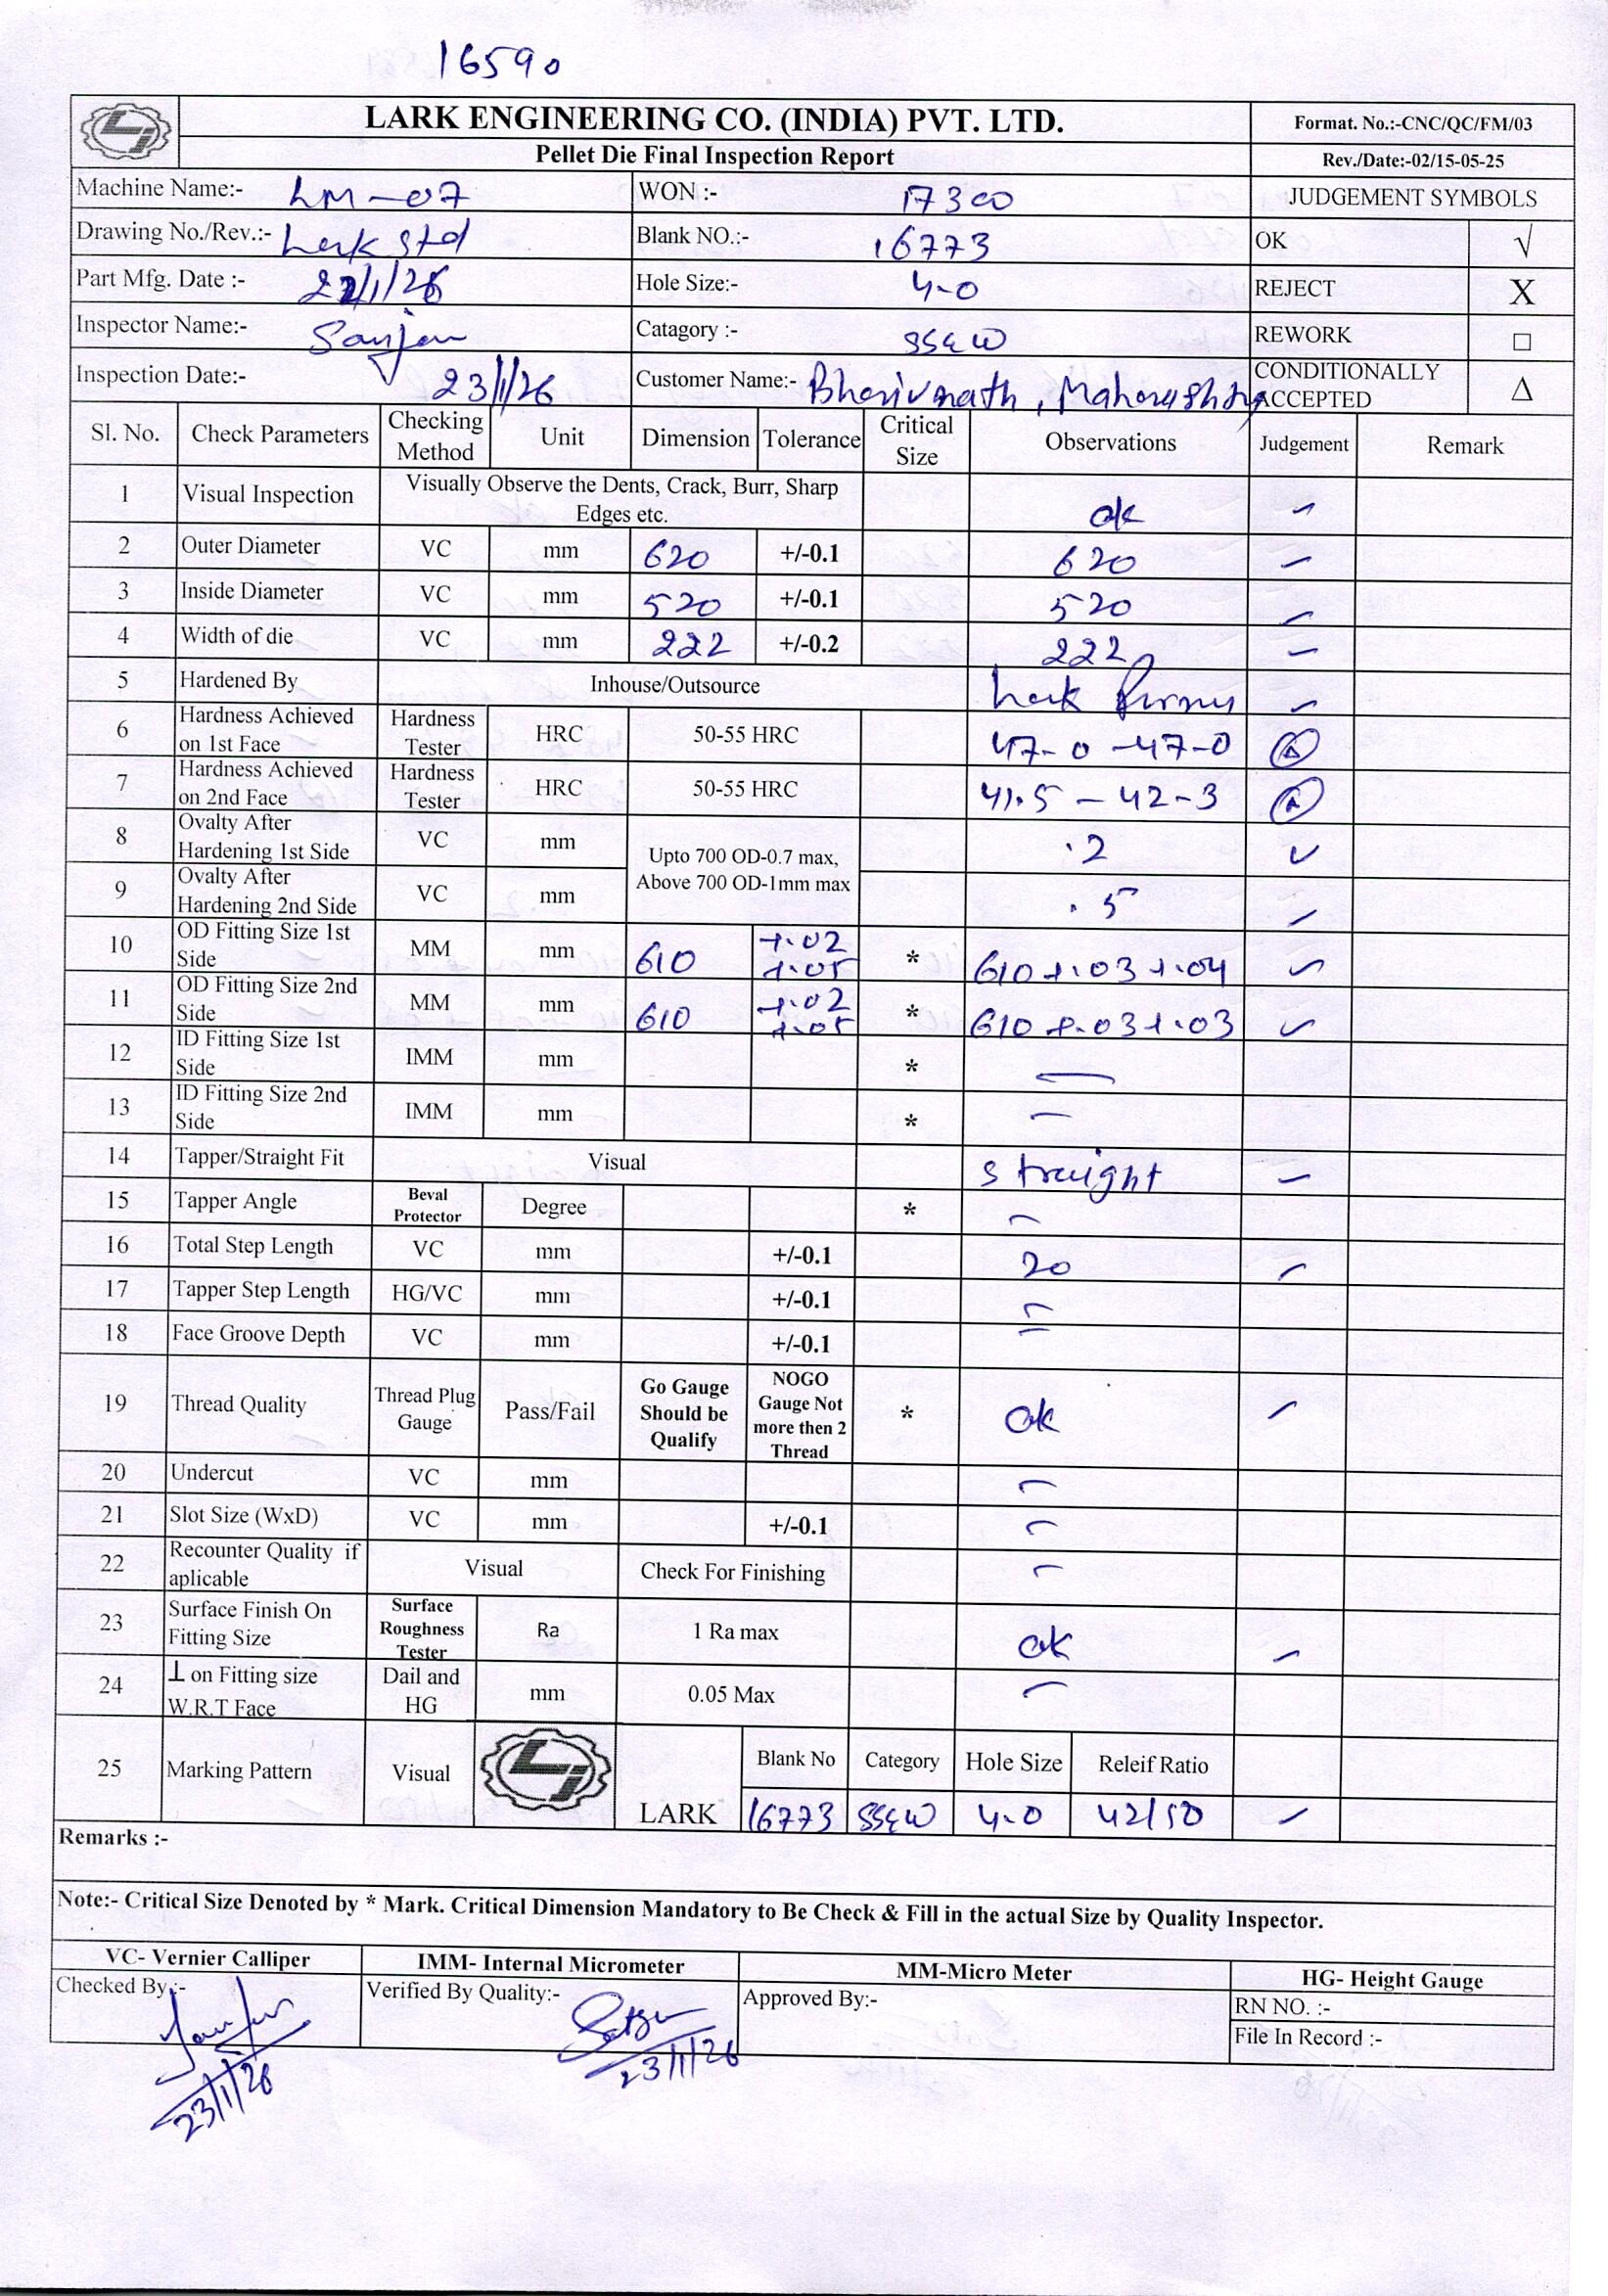 16590
LARK ENGINEERING CO. (INDIA) PVT. LTD.
Format. No.:-CNC/QC/FM/03
Pellet Die Final Inspection Report
Rev./Date:-02/15-05-25
Machine Name:- LM-07 WON :- 17300 JUDGEMENT SYMBOLS
Drawing No./Rev.:- Lark Std Blank NO.:- 16773 OK √
Part Mfg. Date :- 22/1/26 Hole Size:- 4-0 REJECT X
Inspector Name:- Sanjeev Catagory :- SS&W REWORK □
Inspection Date:- 23/1/26 Customer Name:- , Maharashtra CONDITIONALLY ACCEPTED Δ
Sl. No. Check Parameters Checking Method Unit Dimension Tolerance Critical Size Observations Judgement Remark
1 Visual Inspection Visually Observe the Dents, Crack, Burr, Sharp Edges etc. ok
2 Outer Diameter VC mm 620 +/-0.1 620
3 Inside Diameter VC mm 520 +/-0.1 520
4 Width of die VC mm 222 +/-0.2 222
5 Hardened By Inhouse/Outsource Lark
6 Hardness Achieved on 1st Face Hardness Tester HRC 50-55 HRC 47-0 -47-0 Δ
7 Hardness Achieved on 2nd Face Hardness Tester HRC 50-55 HRC 41.5 - 42-3 Δ
8 Ovalty After Hardening 1st Side VC mm Upto 700 OD-0.7 max, Above 700 OD-1mm max .2 ✓
9 Ovalty After Hardening 2nd Side VC mm .5
10 OD Fitting Size 1st Side MM mm 610 +.02 +.05 * 610 +.03 +.04
11 OD Fitting Size 2nd Side MM mm 610 +.02 +.05 * 610 +.03 +.03
12 ID Fitting Size 1st Side IMM mm * —
13 ID Fitting Size 2nd Side IMM mm * —
14 Tapper/Straight Fit Visual Straight
15 Tapper Angle Beval Protector Degree * —
16 Total Step Length VC mm +/-0.1 20
17 Tapper Step Length HG/VC mm +/-0.1 —
18 Face Groove Depth VC mm +/-0.1 —
19 Thread Quality Thread Plug Gauge Pass/Fail Go Gauge Should be Qualify NOGO Gauge Not more then 2 Thread * ok
20 Undercut VC mm —
21 Slot Size (WxD) VC mm +/-0.1 —
22 Recounter Quality if aplicable Visual Check For Finishing —
23 Surface Finish On Fitting Size Surface Roughness Tester Ra 1 Ra max ok
24 ⊥ on Fitting size W.R.T Face Dail and HG mm 0.05 Max —
25 Marking Pattern Visual LARK Blank No Category Hole Size Releif Ratio
16773 SS&W 4-0 42/50
Remarks :-
Note:- Critical Size Denoted by * Mark. Critical Dimension Mandatory to Be Check & Fill in the actual Size by Quality Inspector.
VC- Vernier Calliper IMM- Internal Micrometer MM-Micro Meter HG- Height Gauge
Checked By:- Verified By Quality:- Approved By:- RN NO. :-
File In Record :-
23/1/26
23/1/26